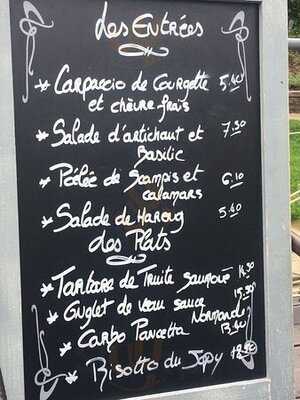 Les Entrées
* Carpaccio de Courgette 5.40
et chèvre frais
* Salade d'artichaut et 7.50
Basilic
* Poêlée de Scampis et 6.10
calamars
* Salade de Hareng 5.40
des Plats
* Tartare de Truite saumoné 14.30
* Onglet de veau sauce 15.30
Normand
* Carbo Pancetta 13.40
* Risotto du